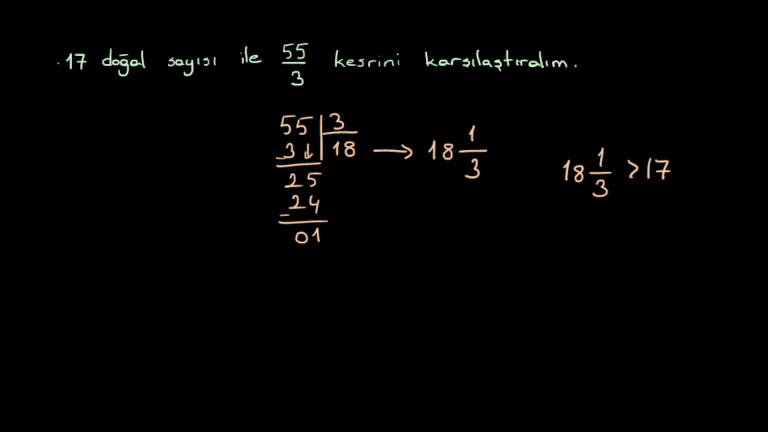 . 17 doğal sayısı ile 55/3 kesrini karşılaştıralım.
55 | 3
- 3↓ 18 → 18 1/3
25
- 24
01
18 1/3 > 17